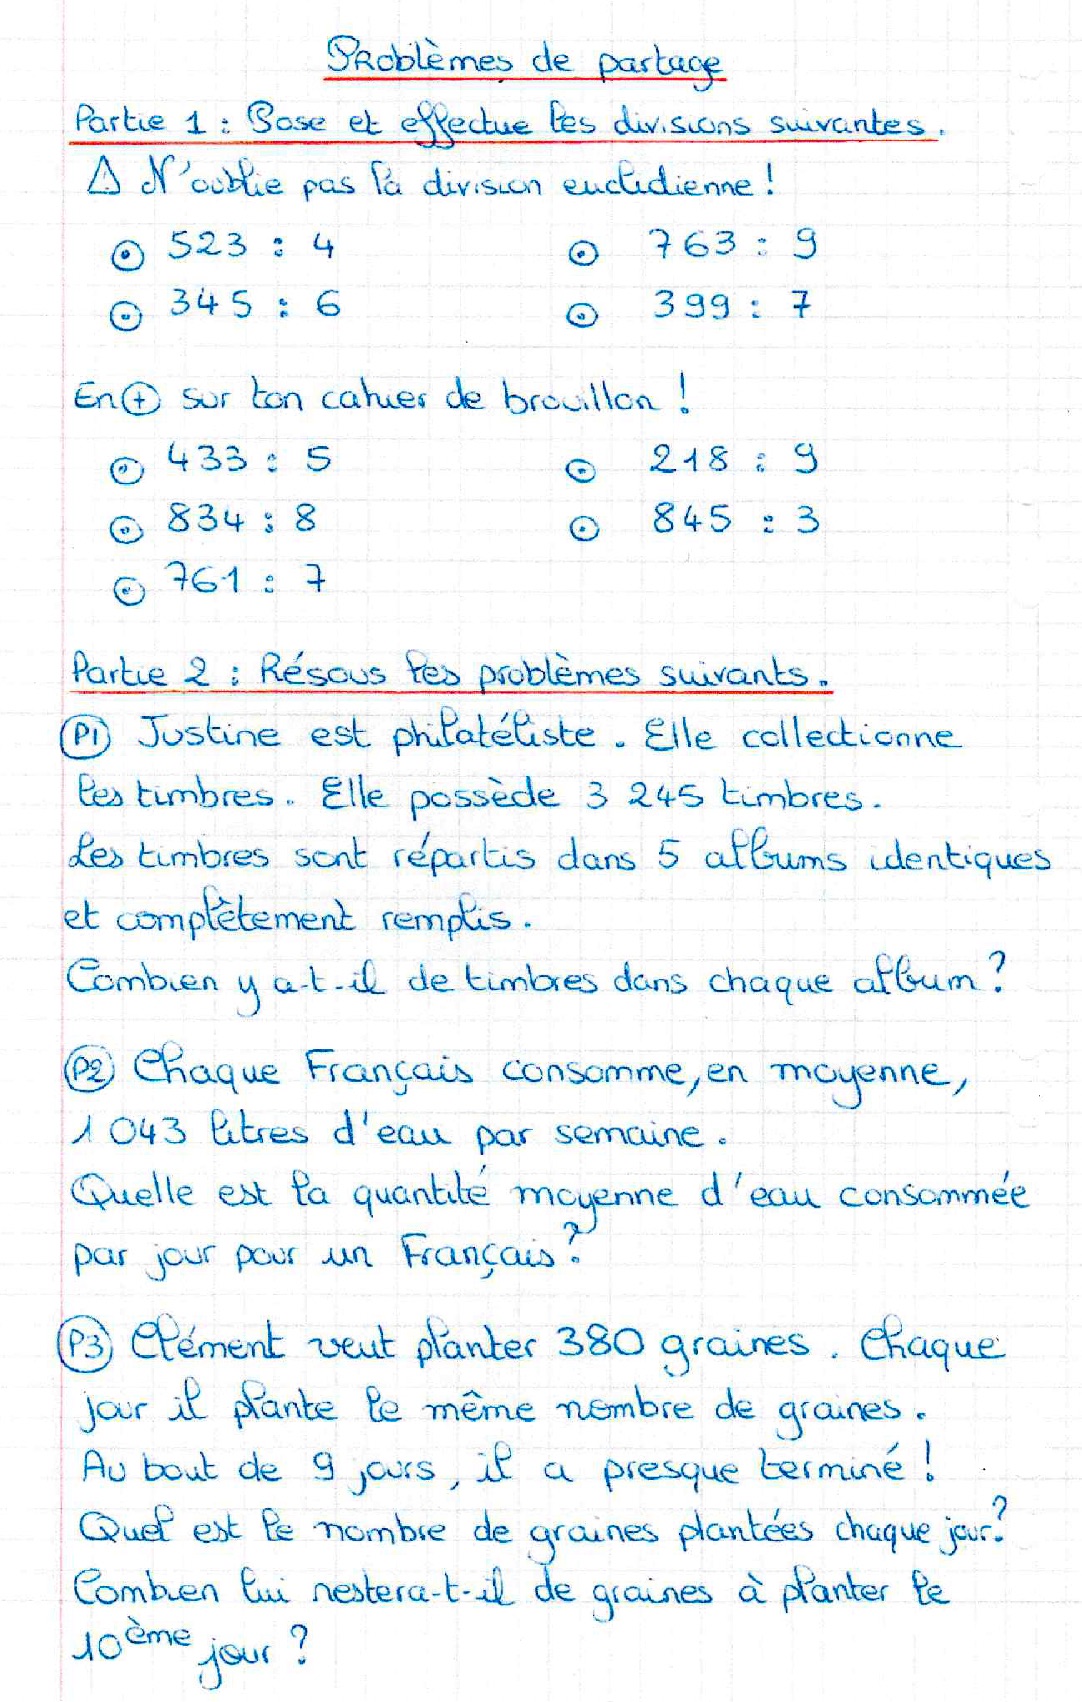 Problèmes de partage
Partie 1 : Pose et effectue les divisions suivantes.
⚠ N'oublie pas la division euclidienne !
⊙ 523 : 4 ⊙ 763 : 9
⊙ 345 : 6 ⊙ 399 : 7
En ⊕ sur ton cahier de brouillon !
⊙ 433 : 5 ⊙ 218 : 9
⊙ 834 : 8 ⊙ 845 : 3
⊙ 761 : 7
Partie 2 : Résous les problèmes suivants.
P1 Justine est philatéliste. Elle collectionne
les timbres. Elle possède 3 245 timbres.
Les timbres sont répartis dans 5 albums identiques
et complètement remplis.
Combien y a-t-il de timbres dans chaque album ?
P2 Chaque Français consomme, en moyenne,
1 043 litres d'eau par semaine.
Quelle est la quantité moyenne d'eau consommée
par jour pour un Français ?
P3 Clément veut planter 380 graines. Chaque
jour il plante le même nombre de graines.
Au bout de 9 jours, il a presque terminé !
Quel est le nombre de graines plantées chaque jour ?
Combien lui restera-t-il de graines à planter le
10ème jour ?